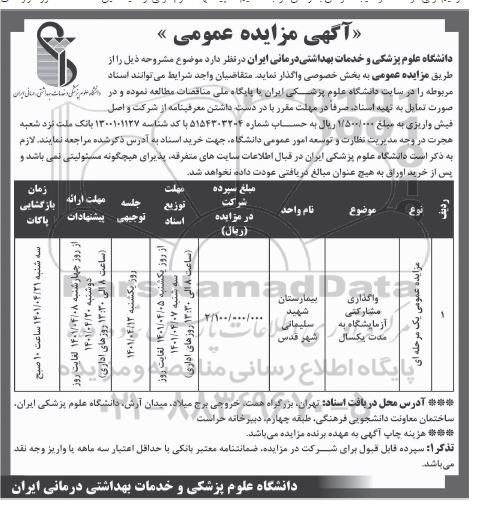 «آگهی مزایده عمومی»
دانشگاه علوم پزشکی و خدمات بهداشتی درمانی ایران در نظر دارد موضوع مشروحه ذیل را از
طریق مزایده عمومی به بخش خصوصی واگذار نماید. متقاضیان واجد شرایط می‌توانند اسناد
مربوطه را در سایت دانشگاه علوم پزشکی ایران یا پایگاه ملی مناقصات مطالعه نموده و در
صورت تمایل به تهیه اسناد، صرفاً در مهلت مقرر با در دست داشتن معرفینامه از شرکت و اصل
فیش واریزی به مبلغ ۱/۵۰۰/۰۰۰ ریال به حساب شماره ۵۱۵۴۳۰۳۲۰۴ با کد شناسه ۱۳۰۰۱۰۱۱۲۷ بانک ملت نزد شعبه
هجرت در وجه مدیریت نظارت و توسعه امور عمومی دانشگاه، جهت خرید اسناد به آدرس ذکرشده مراجعه نمایند. لازم
به ذکر است دانشگاه علوم پزشکی ایران در قبال اطلاعات سایت های متفرقه، پذیرای هیچگونه مسئولیتی نمی باشد و
پس از خرید اوراق به هیچ عنوان مبالغ دریافتی عودت داده نخواهد شد.
دانشگاه علوم پزشکی و خدمات بهداشتی درمانی ایران
ردیف
نوع
موضوع
نام واحد
مبلغ سپرده شرکت در مزایده (ریال)
مهلت توزیع اسناد
جلسه توجیهی
مهلت ارائه پیشنهادات
زمان بازگشایی پاکات
۱
مزایده عمومی یک مرحله ای
واگذاری مشارکتی آزمایشگاه به مدت یکسال
بیمارستان شهید سلیمانی شهر قدس
۲/۱۰۰/۰۰۰/۰۰۰
از روز یکشنبه ۱۴۰۱/۰۴/۰۵ لغایت روز سه شنبه ۱۴۰۱/۰۴/۰۷ (ساعت ۸ الی ۱۳:۳۰ روزهای اداری)
روز یکشنبه ۱۴۰۱/۰۴/۱۲
از روز چهارشنبه ۱۴۰۱/۰۴/۰۸ لغایت روز دوشنبه ۱۴۰۱/۰۴/۲۰ (ساعت ۸ الی ۱۳:۳۰ روزهای اداری)
سه شنبه ۱۴۰۱/۰۴/۲۱ ساعت ۱۰ صبح
*** آدرس محل دریافت اسناد: تهران، بزرگراه همت، خروجی برج میلاد، میدان آرش، دانشگاه علوم پزشکی ایران،
ساختمان معاونت دانشجویی فرهنگی، طبقه چهارم، دبیرخانه حراست
*** هزینه چاپ آگهی به عهده برنده مزایده می‌باشد.
تذکر۱: سپرده قابل قبول برای شرکت در مزایده، ضمانتنامه معتبر بانکی با حداقل اعتبار سه ماهه یا واریز وجه نقد
می‌باشد.
دانشگاه علوم پزشکی و خدمات بهداشتی درمانی ایران